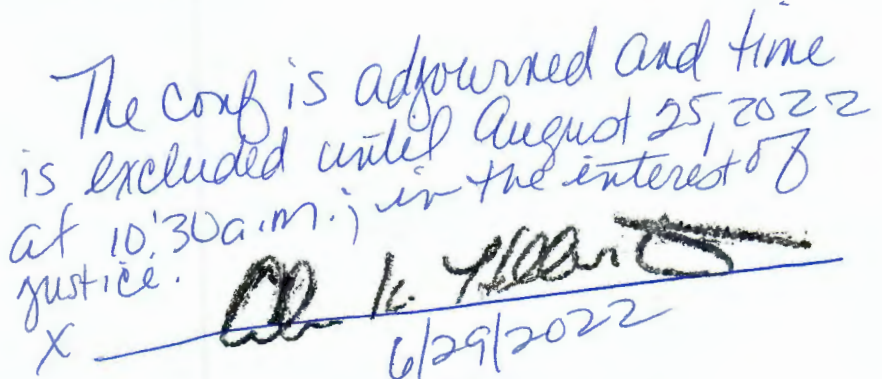 The conf is adjourned and time
is excluded until August 25, 2022
at 10:30 a.m.; in the interest of
justice.
X K.
6/29/2022